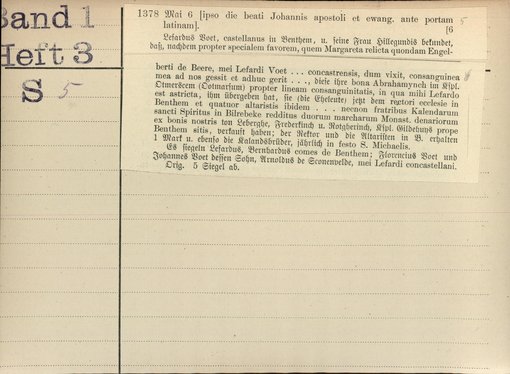 Band 1
Heft 3
S 5
1378 Mai 6 [ipso die beati Johannis apostoli et ewang. ante portam 5
latinam]. [6
Lefardus Voet, castellanus in Benthem, u. seine Frau Hillegundis bekundet,
daß, nachdem propter specialem favorem, quem Margareta relicta quondam Engel-
berti de Beere, mei Lefardi Voet . . . concastrensis, dum vixit, consanguinea
mea ad nos gessit et adhuc gerit . . ., diese ihre bona Abrahamynch im Kspl.
Otmerseem (Ootmarsum) propter lineam consanguinitatis, in qua mihi Lefardo
est astricta, ihm übergeben hat, sie (die Eheleute) jetzt dem rectori ecclesie in
Benthem et quatuor altaristis ibidem . . . necnon fratribus Kalendarum
sancti Spiritus in Bilrebeke redditus duorum marcharum Monast. denariorum
ex bonis nostris ton Leberghe, Frederkinch u. Rotgherinch, Kspl. Gildehuns prope
Benthem sitis, verkauft haben; der Rektor und die Altaristen in B. erhalten
1 Mark u. ebenso die Kalandsbrüder, jährlich in festo S. Michaelis.
Es siegeln Lefardus, Bernhardus comes de Benthem; Florencius Voet und
Johannes Voet dessen Sohn, Arnoldus de Sconenvelde, mei Lefardi concastellani.
Orig. 5 Siegel ab.